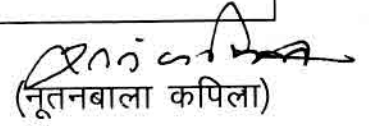 (नूतनबाला कपिला)